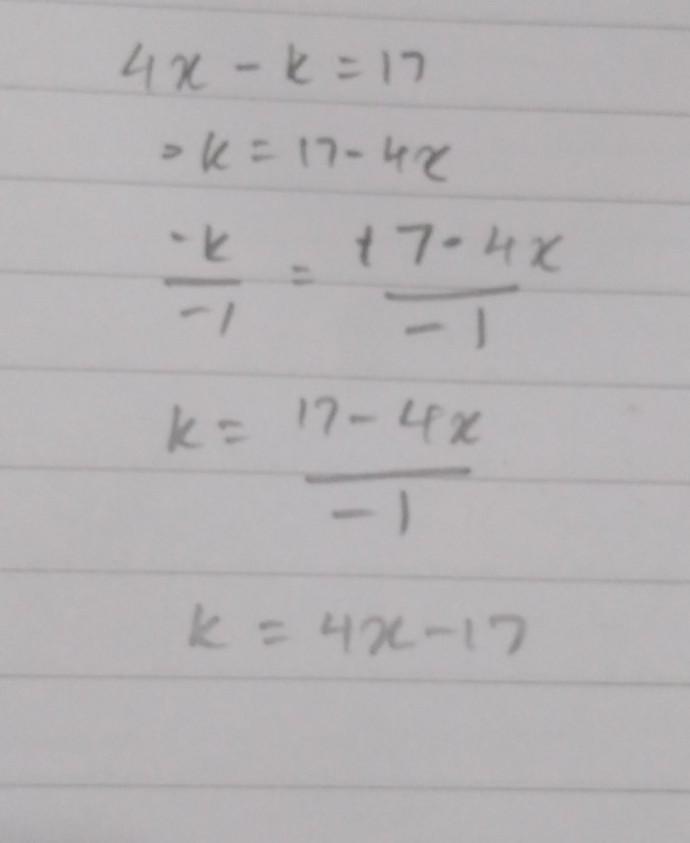 4x - k = 17
- k = 17 - 4x
-k/-1 = 17 - 4x/-1
k = 17 - 4x/-1
k = 4x - 17